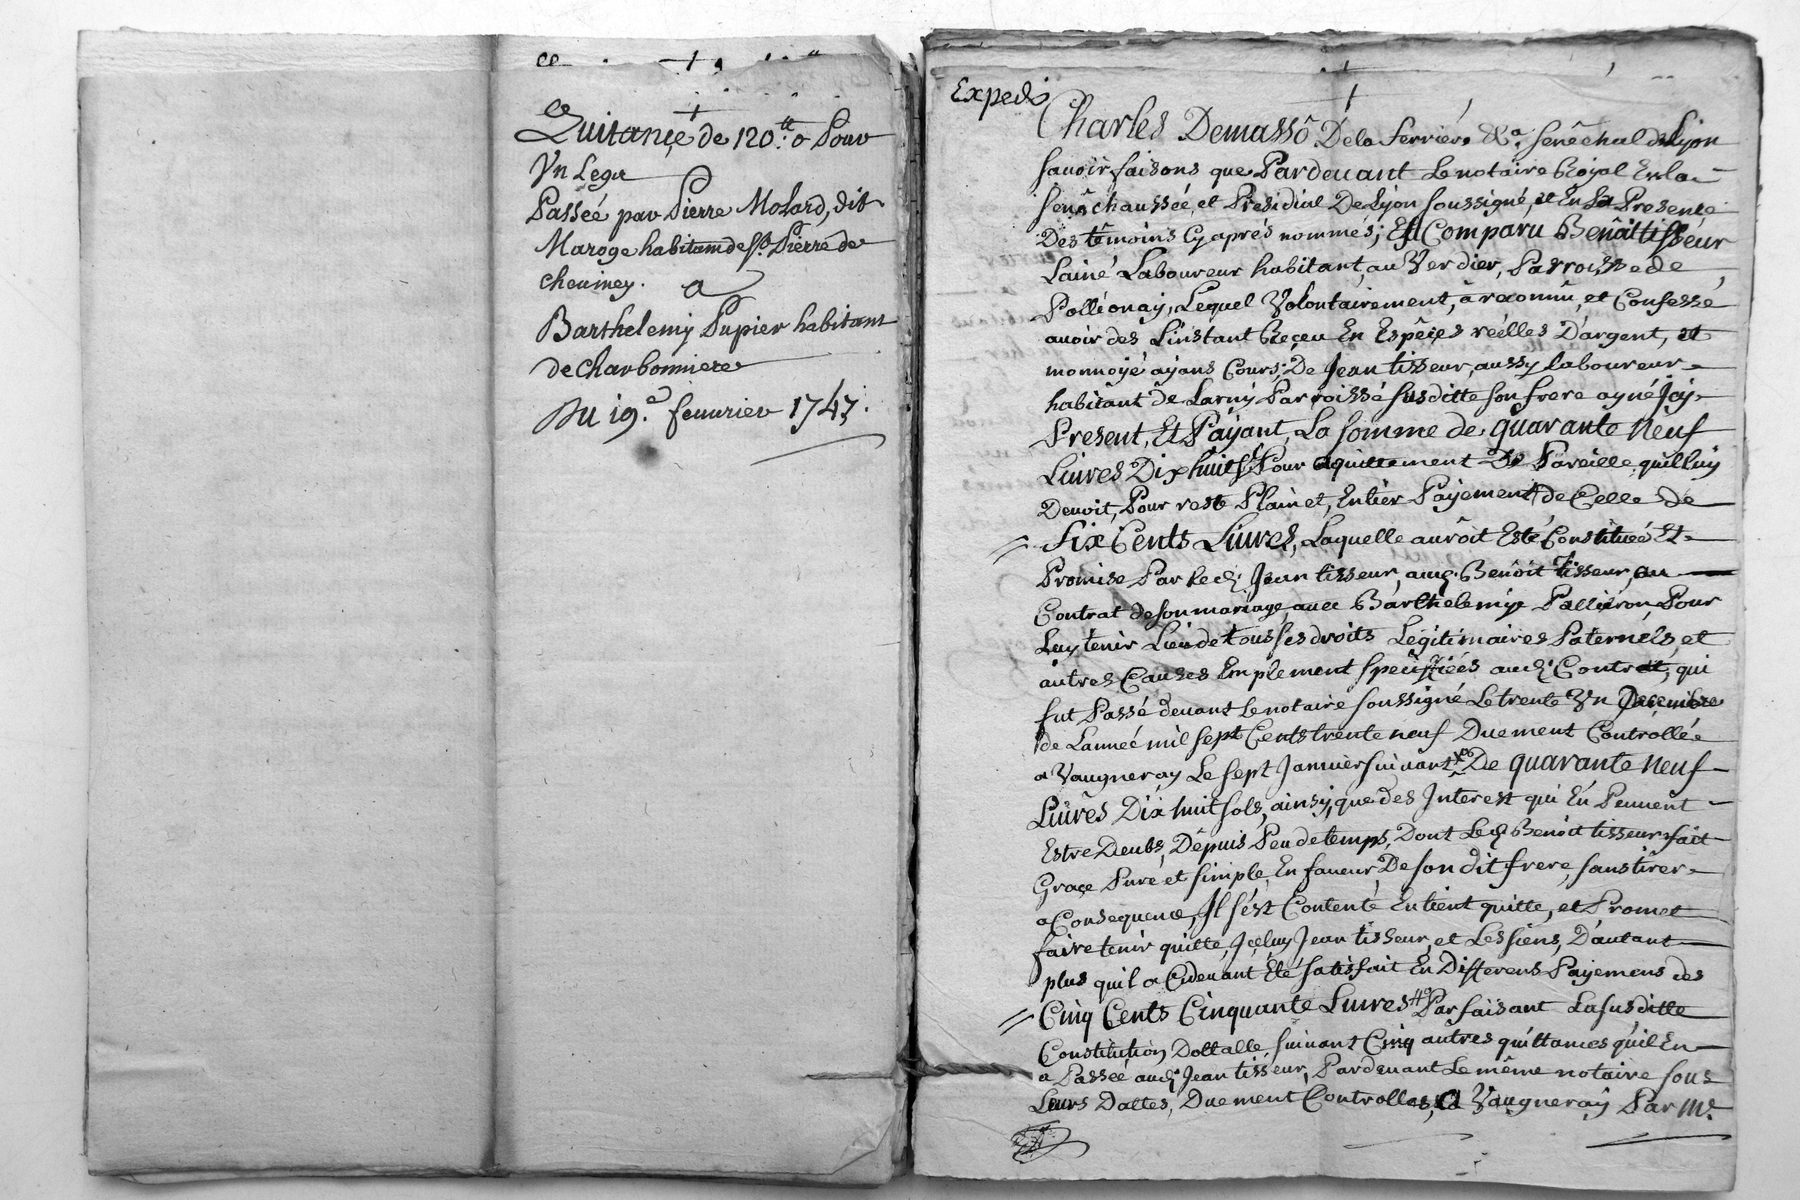 Quitançe de 120.tt o Pour
Vn Legu
Passeé par Pierre Molard, dit
Maroge habitant de St. Pierre de
cheviney. a
Barthelemy Pupier habitant
de Charbonniere
Du 19.e feuurier 1747.
Expedi
Charles Demassô De la ferriére &a. senêchal de Lyon
sauoir faisons que Pardeuant Le notaire Royal En la
senêchausseé, et Presidial De Lyon soussigné, et En La Presence
Des têmoins Cy aprés nommés; Est Comparu Benôit tisseur
Lainé Laboureur habitant, au Verdier, Parroisse de
Polléonay, Lequel Volontairement, à reconnû, et Confessé
auoir des L'instant Reçeu En Espêçes réelles D'argent, et
monnoyé ayans Cours; De Jean tisseur, aussy laboureur
habitant de Larny Parroisse susditte son frere ayné Jcy
Present, Et Payant, La somme de quarante Neuf
Liures Dix huit s. Pour aquittement De Pareille, quil luy
Deuoit, Pour reste Plain et, Entier Payement de Celle de
Six Cents Liures, Laquelle aurôit Esté Constitueé Et
Promise Par led. Jean tisseur, aud. Benôit tisseur, au
Contrat de son mariage, auec Barthelemie Pallieron, Pour
Luy tenir Lieu de tous ses droits Légitimaires Paternels, et
autres Causes Emplement specifiées aud. Contrat, qui
fut Passé deuant Le notaire soussigné Le trente Vn Decembre
de Lanneé mil sept Cents trente neuf Duement Controlleé
a Vaugneray Le sept Januier suiuant De quarante neuf
Liures Dix huit sols, ainsy, que des Interest qui En Peuuent
Estre Deubs, Dépuis Peu de temps, Dont Led. Benôit tisseur fait
Graçe Pure et simple, En faueur, De son dit frere, sans tirer
a Consequence, Il s'est Contenté En tient quitte, et Promet
faire tenir quitte, Jçeluy Jean tisseur, et Les siens, D'autant
plus quil a Cideuant Eté satisfait En Differens Payemens des
Cinq Cents Cinquante Liures Parfaisant La susditte
Constitution Dottalle, suiuant Cinq autres quittances qu'il En
a Passeé aud. Jean tisseur, Pardeuant Le même notaire sous
Leurs Dattes, Duement Controlleés, A Vaugneray Par Me.